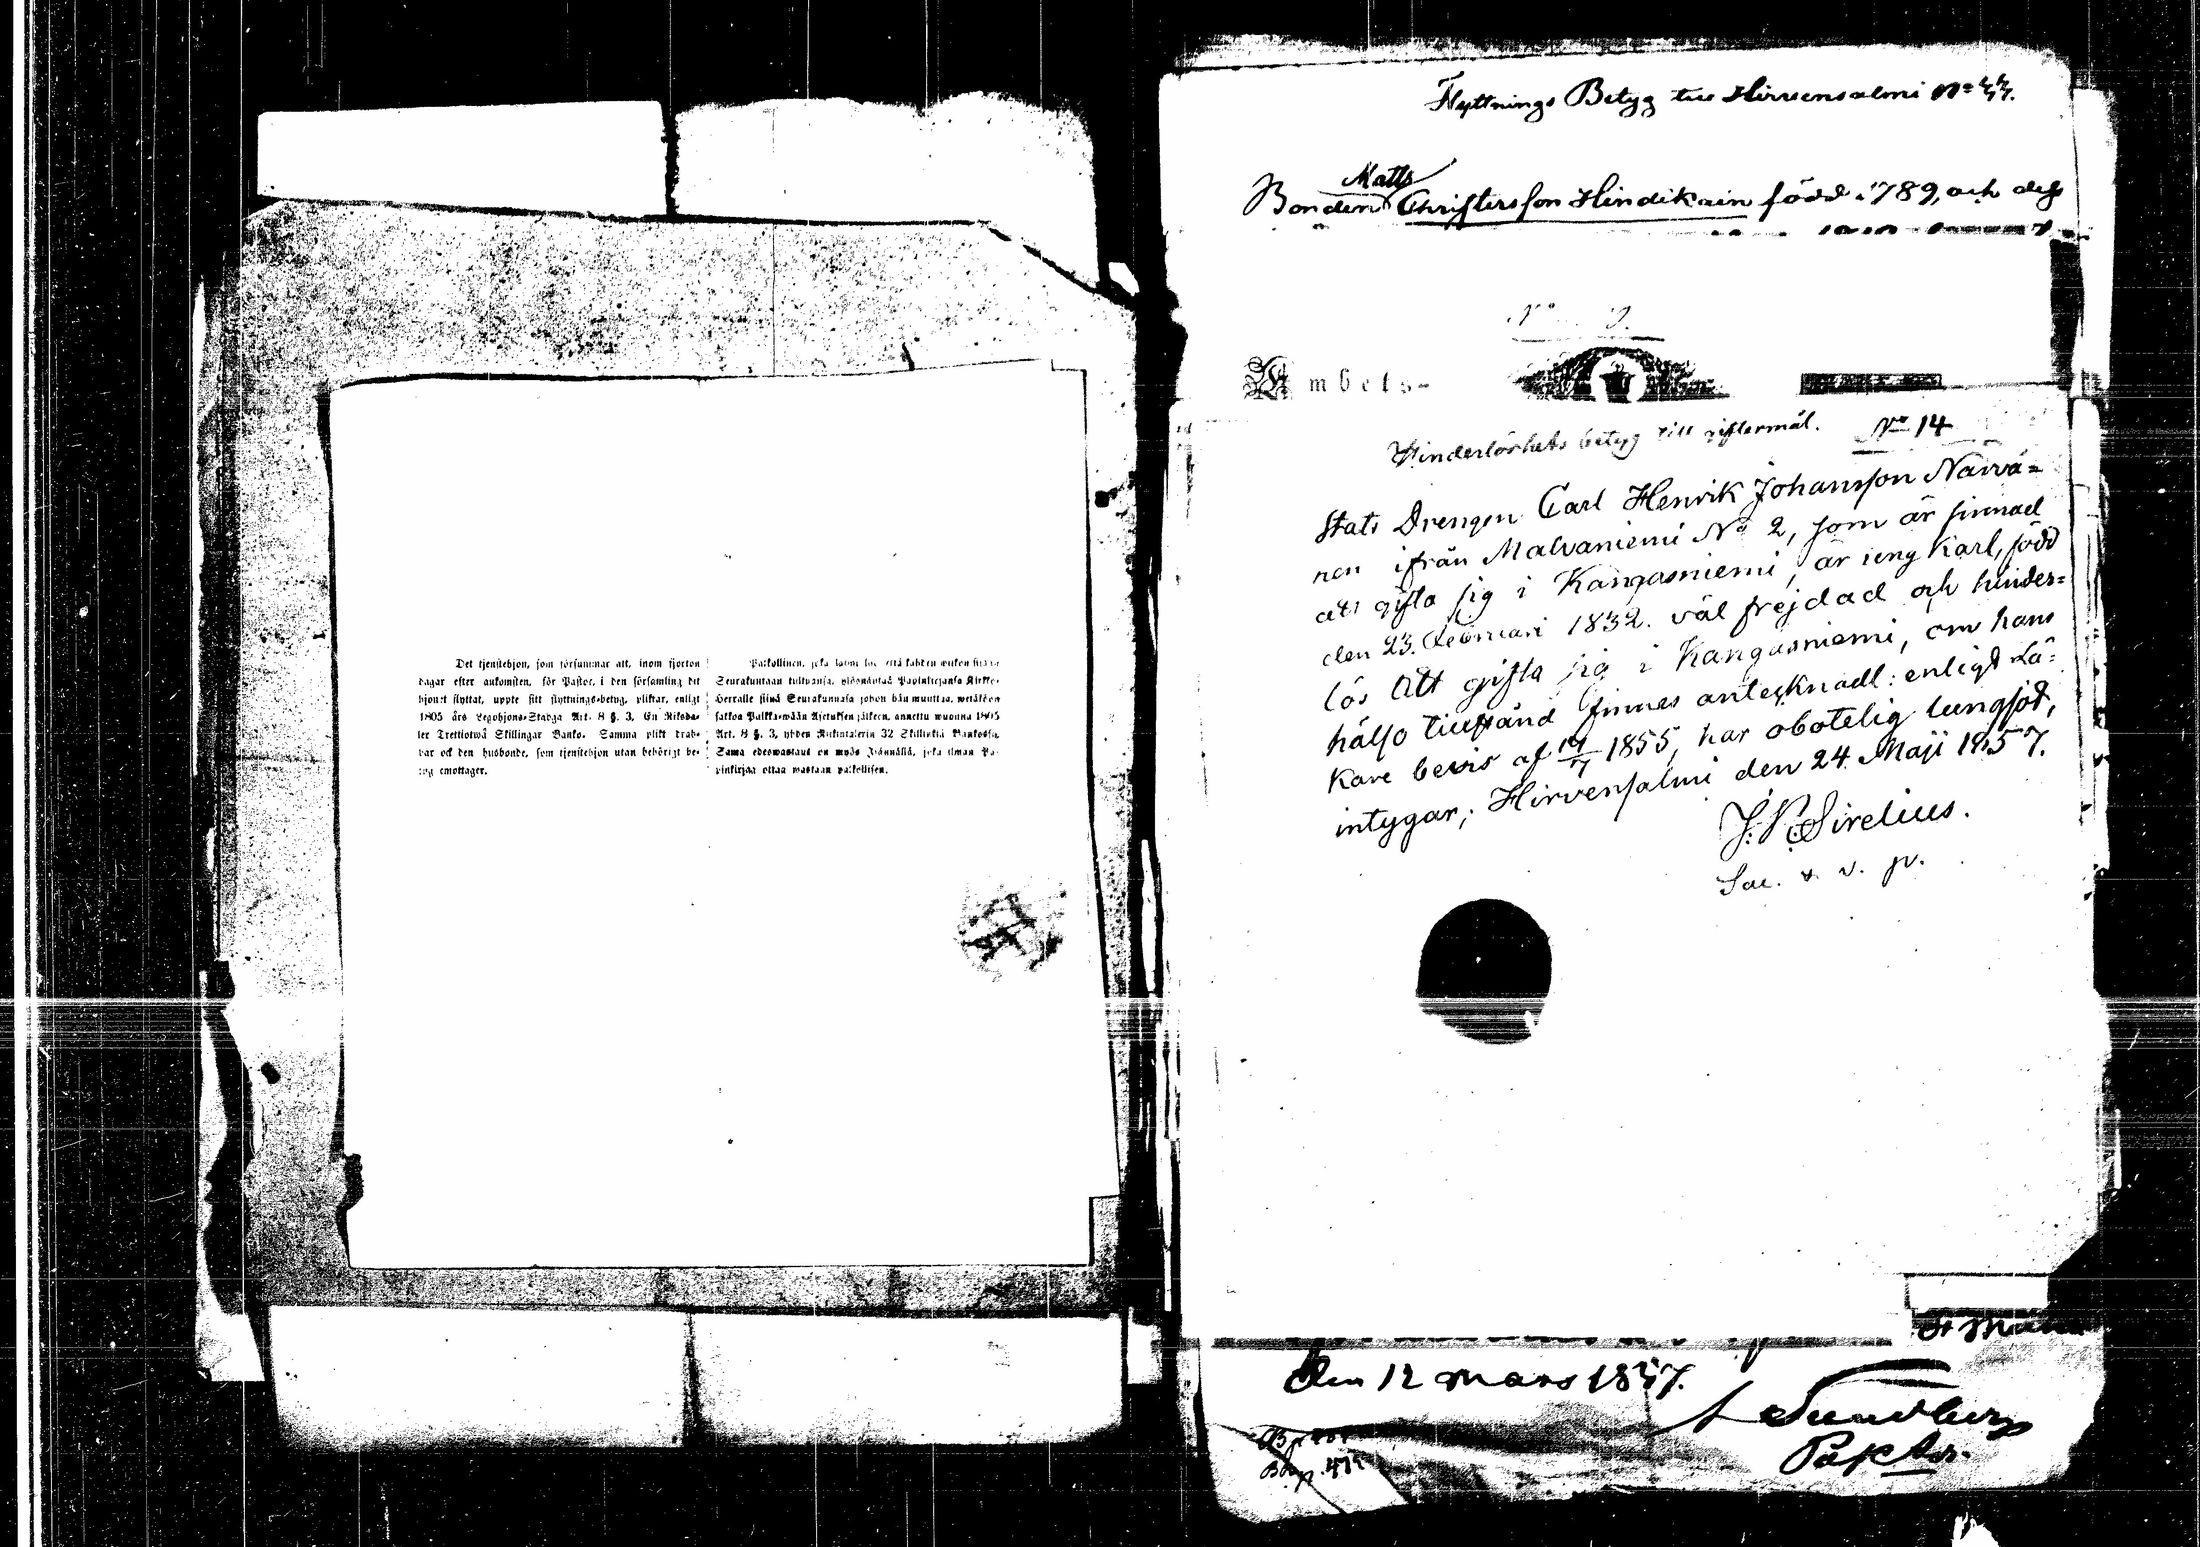 Det tjenstehjon, som försummar att, inom fjorton
dagar efter ankomsten, för Pastor, i den församling dit
hjonet flyttat, uppte sitt flyttnings-betyg, pliktar, enligt
1805 års Legohjons-Stadga Art. 8 §. 3, En Riksda-
ler Trettiotwå Skillingar Banko. Samma plikt drab-
bar ock den husbonde, som tjenstehjon utan behörigt be-
tyg emottager.
Palkollinen, joka
Seurakuntaan tultuansa, ylösnäytää Papinkirjansa Kirkko-
Herralle siinä Seurakunnasa johon hän muuttaa, wetäköön
sakkoa Palkka-wään Asetuksen jälkeen, annettu wuonna 1805
Art. 8 §. 3, yhden Riikintalerin 32 Skillinkiä Bankossa.
Sama edeswastaus on myös Isännällä, joka ilman Pa-
pinkirjaa ottaa wastaan palkollisen.
Flyttnings Betyg till Hirvensalmi No 44.
Matts
Bonden Christersson Hindikain född 1789, och dess
Ambets-
Hinderlöshets betyg till giftermål. No 14
Stats Drengen Carl Henrik Johansson Narvä=
nen ifrån Malvaniemi No 2, som är sinnad
att gifta sig i Kangasniemi, är ung Karl, född
den 23. Februari 1832. väl frejdad och hinder=
lös att gifta sig i Kangasniemi, om hans
hälso tillstånd finnes antecknadt: enligt Lä=
kare bevis af 19/7 1855, har obotelig lungsot,
intygar; Hirvensalmi den 24 Maji 1857.
J. N. Sirelius.
Sac. & v. p.
Den 12 Mars 1857.
A Sundberg